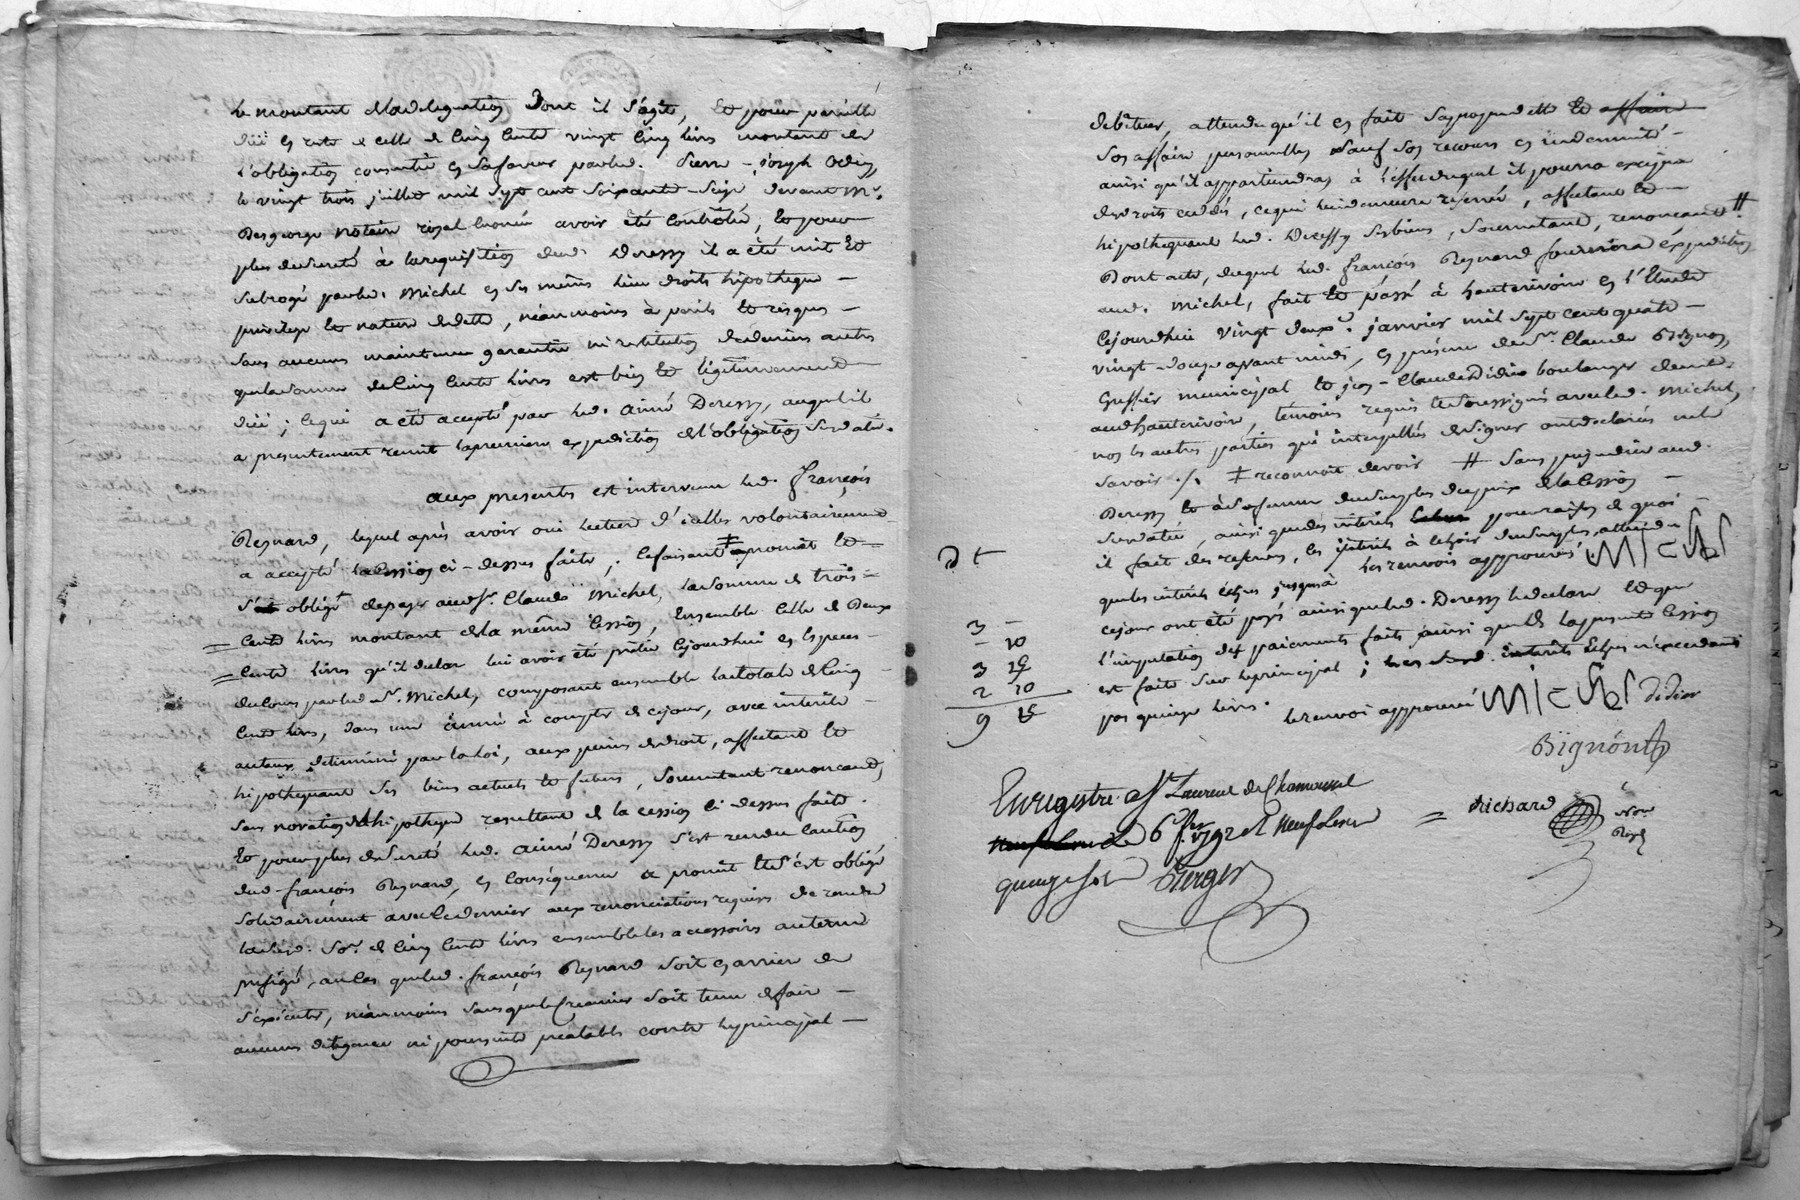 le montant de la delegation dont il s'agit, et pour pareille
düe en reste de celle de cinq cents vingt cinq livres montant de
l'obligation consentie en sa faveur par led. Pierre-Joseph
le vingt trois juillet mil sept cent soixante-seize devant Mr.
Desgeorge notaire royal énoncé avoir été controllée, et pour
plus de sureté à la requisition dud. Deressy il a été mit et
subrogé par led. Michel en ses mêmes lieu droits hipotheque -
privilege et nature de dette, néanmoins à perils et risques -
sans aucune maintenue garantie ni restitution de deniers autres
que la somme de cinq cents livres est bien et légitimement
düe ; ce qui a été accepté par led. aimé Deressy, auquel il
a presentement remit la premiere expedition de l'obligation susdatée.
aux presentes est intervenu led. françois
Reynard, lequel après avoir oui lecture d'icelles volontairement
a accepté la cession ci-dessus faite, ce faisant ‡ a promit et
s'est obligé de payer aud. Sr. Claude Michel, la somme de trois =
cents livres montant de la même cession, ensemble celle de Deux
cents livres qu'il declare lui avoir été prêtée cejourdhui en especes -
de cours par led. Sr. Michel, composant ensemble la totale de cinq
cents livres, dans une année à compter de ce jour, avec intérêts -
au taux déterminé par la loi, aux peines de droit, affectant et
hipothequant ses biens actuels et futurs, soumettant renoncant,
sans novation d'hipotheque resultant de la cession ci-dessus faite.
Et pour plus de sureté led. aimé Deressy s'est rendu caution
dud. françois Reynard, en conséquence a promit et s'est obligé
solidairement avec ce dernier aux renonciations requises de rendre
lad. so. de cinq cents livres ensemble les accessoires au terme
prefigé, au cas que led. françois Reynard soit en arriere de
s'exécuter, néanmoins sans que le creancier soit tenu de faire -
aucunes diligences ni poursuite prealable contre le principal -
debiteur, attendu qu'il en fait sa propre dette et affaire
Ses affaires personnelles sauf son recours en indemnité -
ainsi qu'il appartiendra à l'effet duquel il pourra exciper
des droits cedés, ce qui lui demeure reservé, affectant et -
hipothequant led. Deressy ses biens, soumettant, renoncant #.
Dont acte, duquel led. françois Reynard fournira expedition
aud. Michel, fait et passé à hauterivoire en l'Etude
cejourdhui vingt deuxe. janvier mil sept cent quatre -
vingt-douze avant midi, en présence de Sr. Claude Bignon,
Greffier municipal et jean-Claude Didier boulanger demt.
aud. hauterivoire, témoins requis et soussignés avec led. Michel,
non les autres parties qui interpellés de signer ont déclarés ne le
savoir ./. ‡ reconnoit devoir # sans prejudice aud.
Deressy et à de la cession -
susdatée, ainsi que des intérêts pour raison de quoi -
il fait des reserves, les intérêts à échoir
Les renvois approuvés Michel
que les intérêts échus jusqu'à
ce jour ont été payés ainsi que led. Deressy le declare et que
l'imputation des paiements faits ainsi que de la presente cession
est faite sur le principal ; intérêts échus n'excedant
pas quinze livres.
le renvoi approuvé Michel didier
Bignon
D t
3 -
- 10
3 15
2 10
9 15
Enregistré a St Laurent de Chamousset
le 6 fer. 1792 et Neuf livres
quinze sols
Richard
No.re
Royal